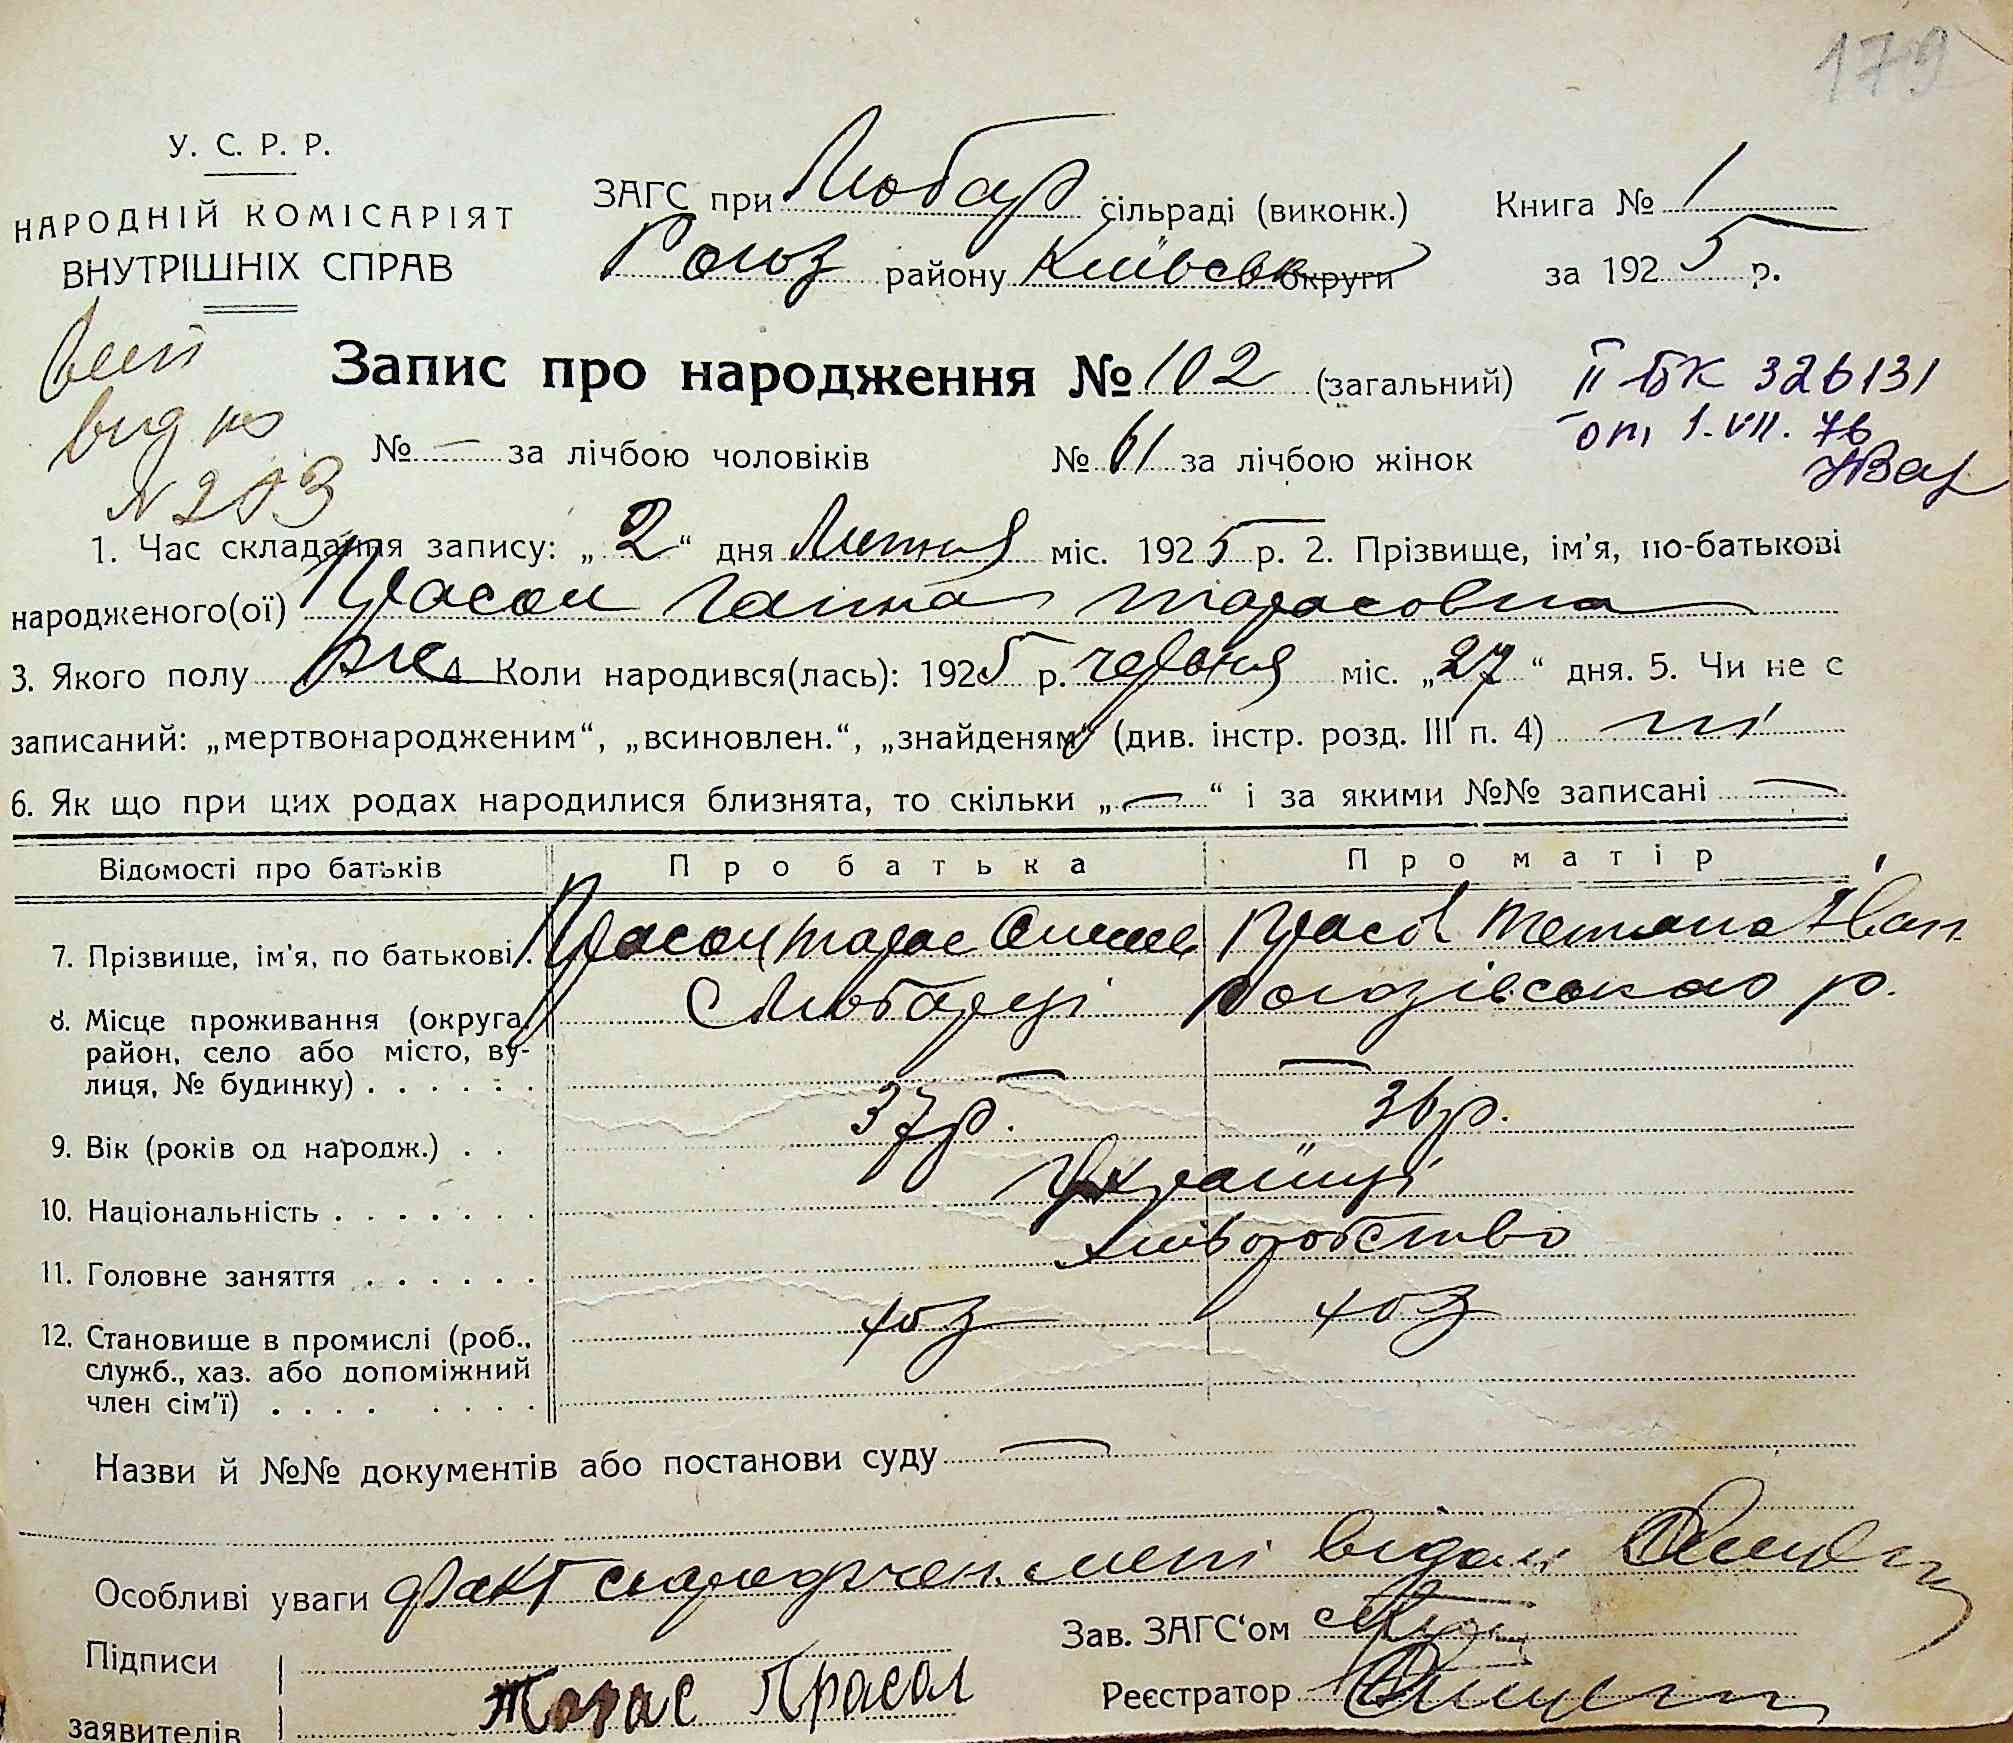 179
У. С. Р. Р.
НАРОДНІЙ КОМІСАРІЯТ
ВНУТРІШНІХ СПРАВ
ЗАГС при Любар сільраді (виконк.)
Рогоз району Київськ округи
Книга № 1
за 1925 р.
Запис про народження № 102 (загальний)
II БК 326131
от 1.VII.76
вид
№ 203
№ — за лічбою чоловіків № 61 за лічбою жінок
1. Час складання запису: „2“ дня Липня міс. 1925 р. 2. Прізвище, ім'я, по-батькові
народженого(ої) Прасол Ганна Тарасовна
3. Якого полу жі 4. Коли народився(лась): 1925 р. червня міс. „27“ дня. 5. Чи не є
записаний: „мертвонародженим“, „всиновлен.“, „знайденям“ (див. інстр. розд. III п. 4) ні
6. Як що при цих родах народилися близнята, то скільки „—“ і за якими №№ записані —
Відомості про батьків Про батька Про матір
7. Прізвище, ім'я, по батькові. Прасол Тарас Прасол Тетяна Іван.
8. Місце проживання (округа, с Любарці Рогозівського р.
район, село або місто, ву-
лиця, № будинку) . . . . . . — —
9. Вік (років од народж.) . . 37 р. 36 р.
10. Національність . . . . . . . Українці
11. Головне заняття . . . . . . Хліборобство
12. Становище в промислі (роб., хоз хоз
служб., хаз. або допоміжний
член сім'ї) . . . . . . . .
Назви й №№ документів або постанови суду —
Особливі уваги факт народжен. мені відом
Зав. ЗАГС'ом
Підписи
Тарас Прасол
Реєстратор
заявителів